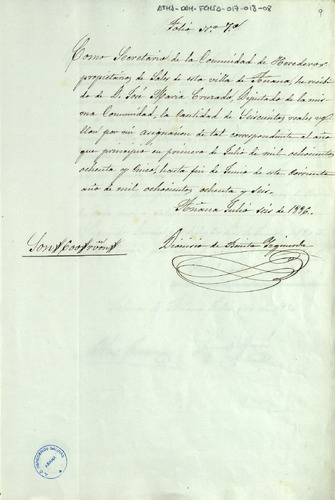 ATHA-DAH-FCMSA-017-018-08
9
Folio n.º 7.º
Como Secretario de la Comunidad de Herederos
propietarios de Sales de esta villa de Añana, he recibido
de D. José Maria Conrado, Diputado de la mis
ma Comunidad, la cantidad de Seiscientos reales
por mi asignacion de tal correspondiente al año
que principio en primero de Julio de mil ochocientos
ochenta y cinco, hasta fin de Junio de este corriente
año de mil ochocientos ochenta y seis.
Añana Julio seis de 1886.
Son 600 r.s v.on
Dionisio de Izquierdo